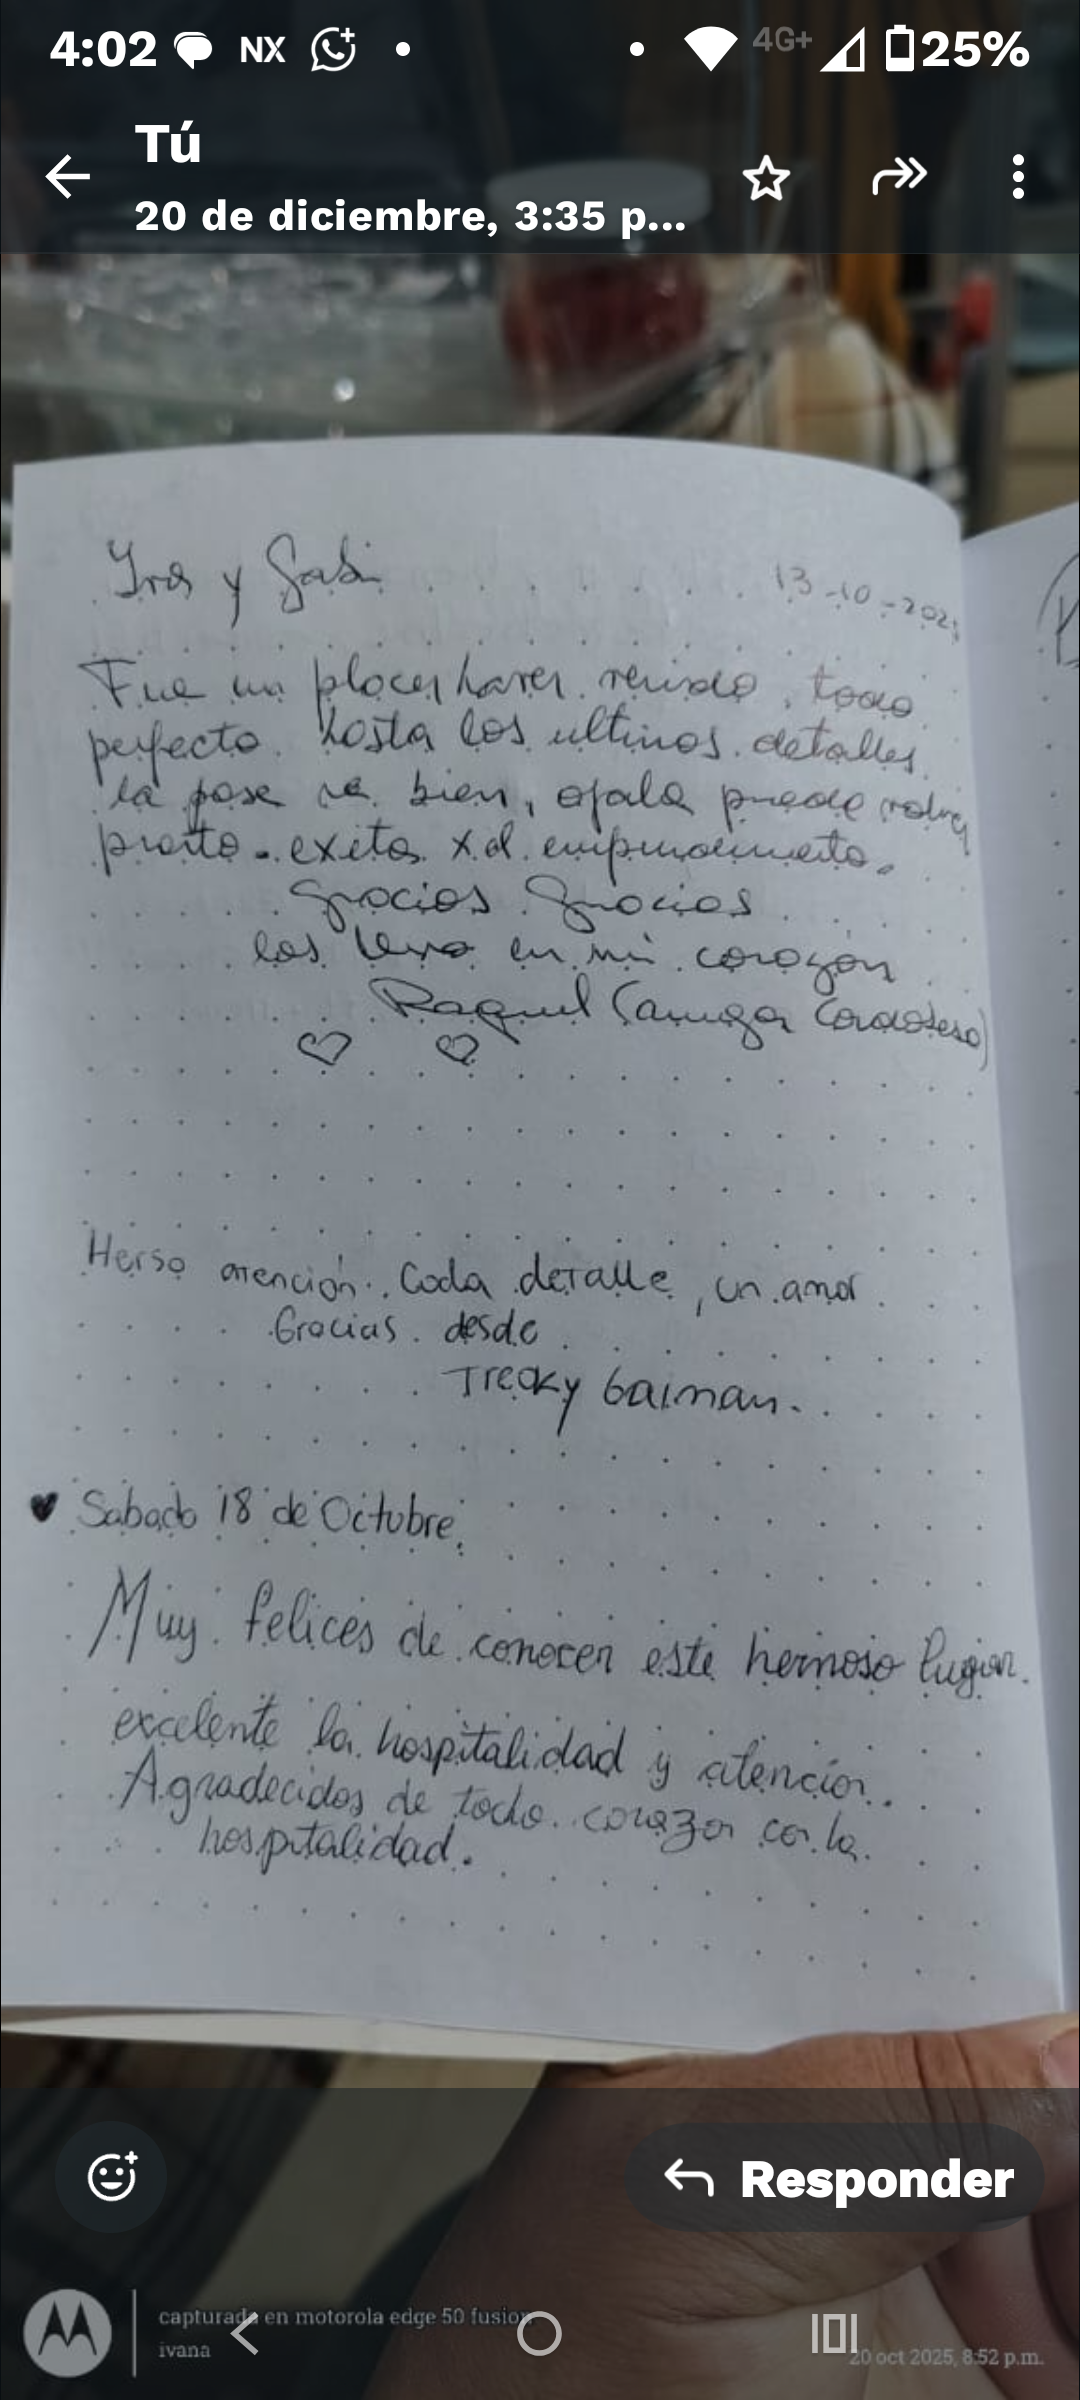 4:02 NX 4G+ 25%
Tú
20 de diciembre, 3:35 p...
y Gabi
13-10-202
Fue un placer haver venido, todo
perfecto hasta los ultimos detalles
la pase re bien, ojala puede volver
pronto. exitos x el emprendimiento.
Gracias Gracias
los llevo en mi corazon
Raquel (amiga Cordobesa)
Herso atención. Cada detalle, un amor
Gracias desde
Treaky Gaiman.
Sabado 18 de Octubre.
Muy felices de conocer este hermoso lugar.
excelente la hospitalidad y atención.
Agradecidos de todo corazon con la
hospitalidad.
Responder
capturada en motorola edge 50 fusion
ivana
20 oct 2025, 8:52 p.m.